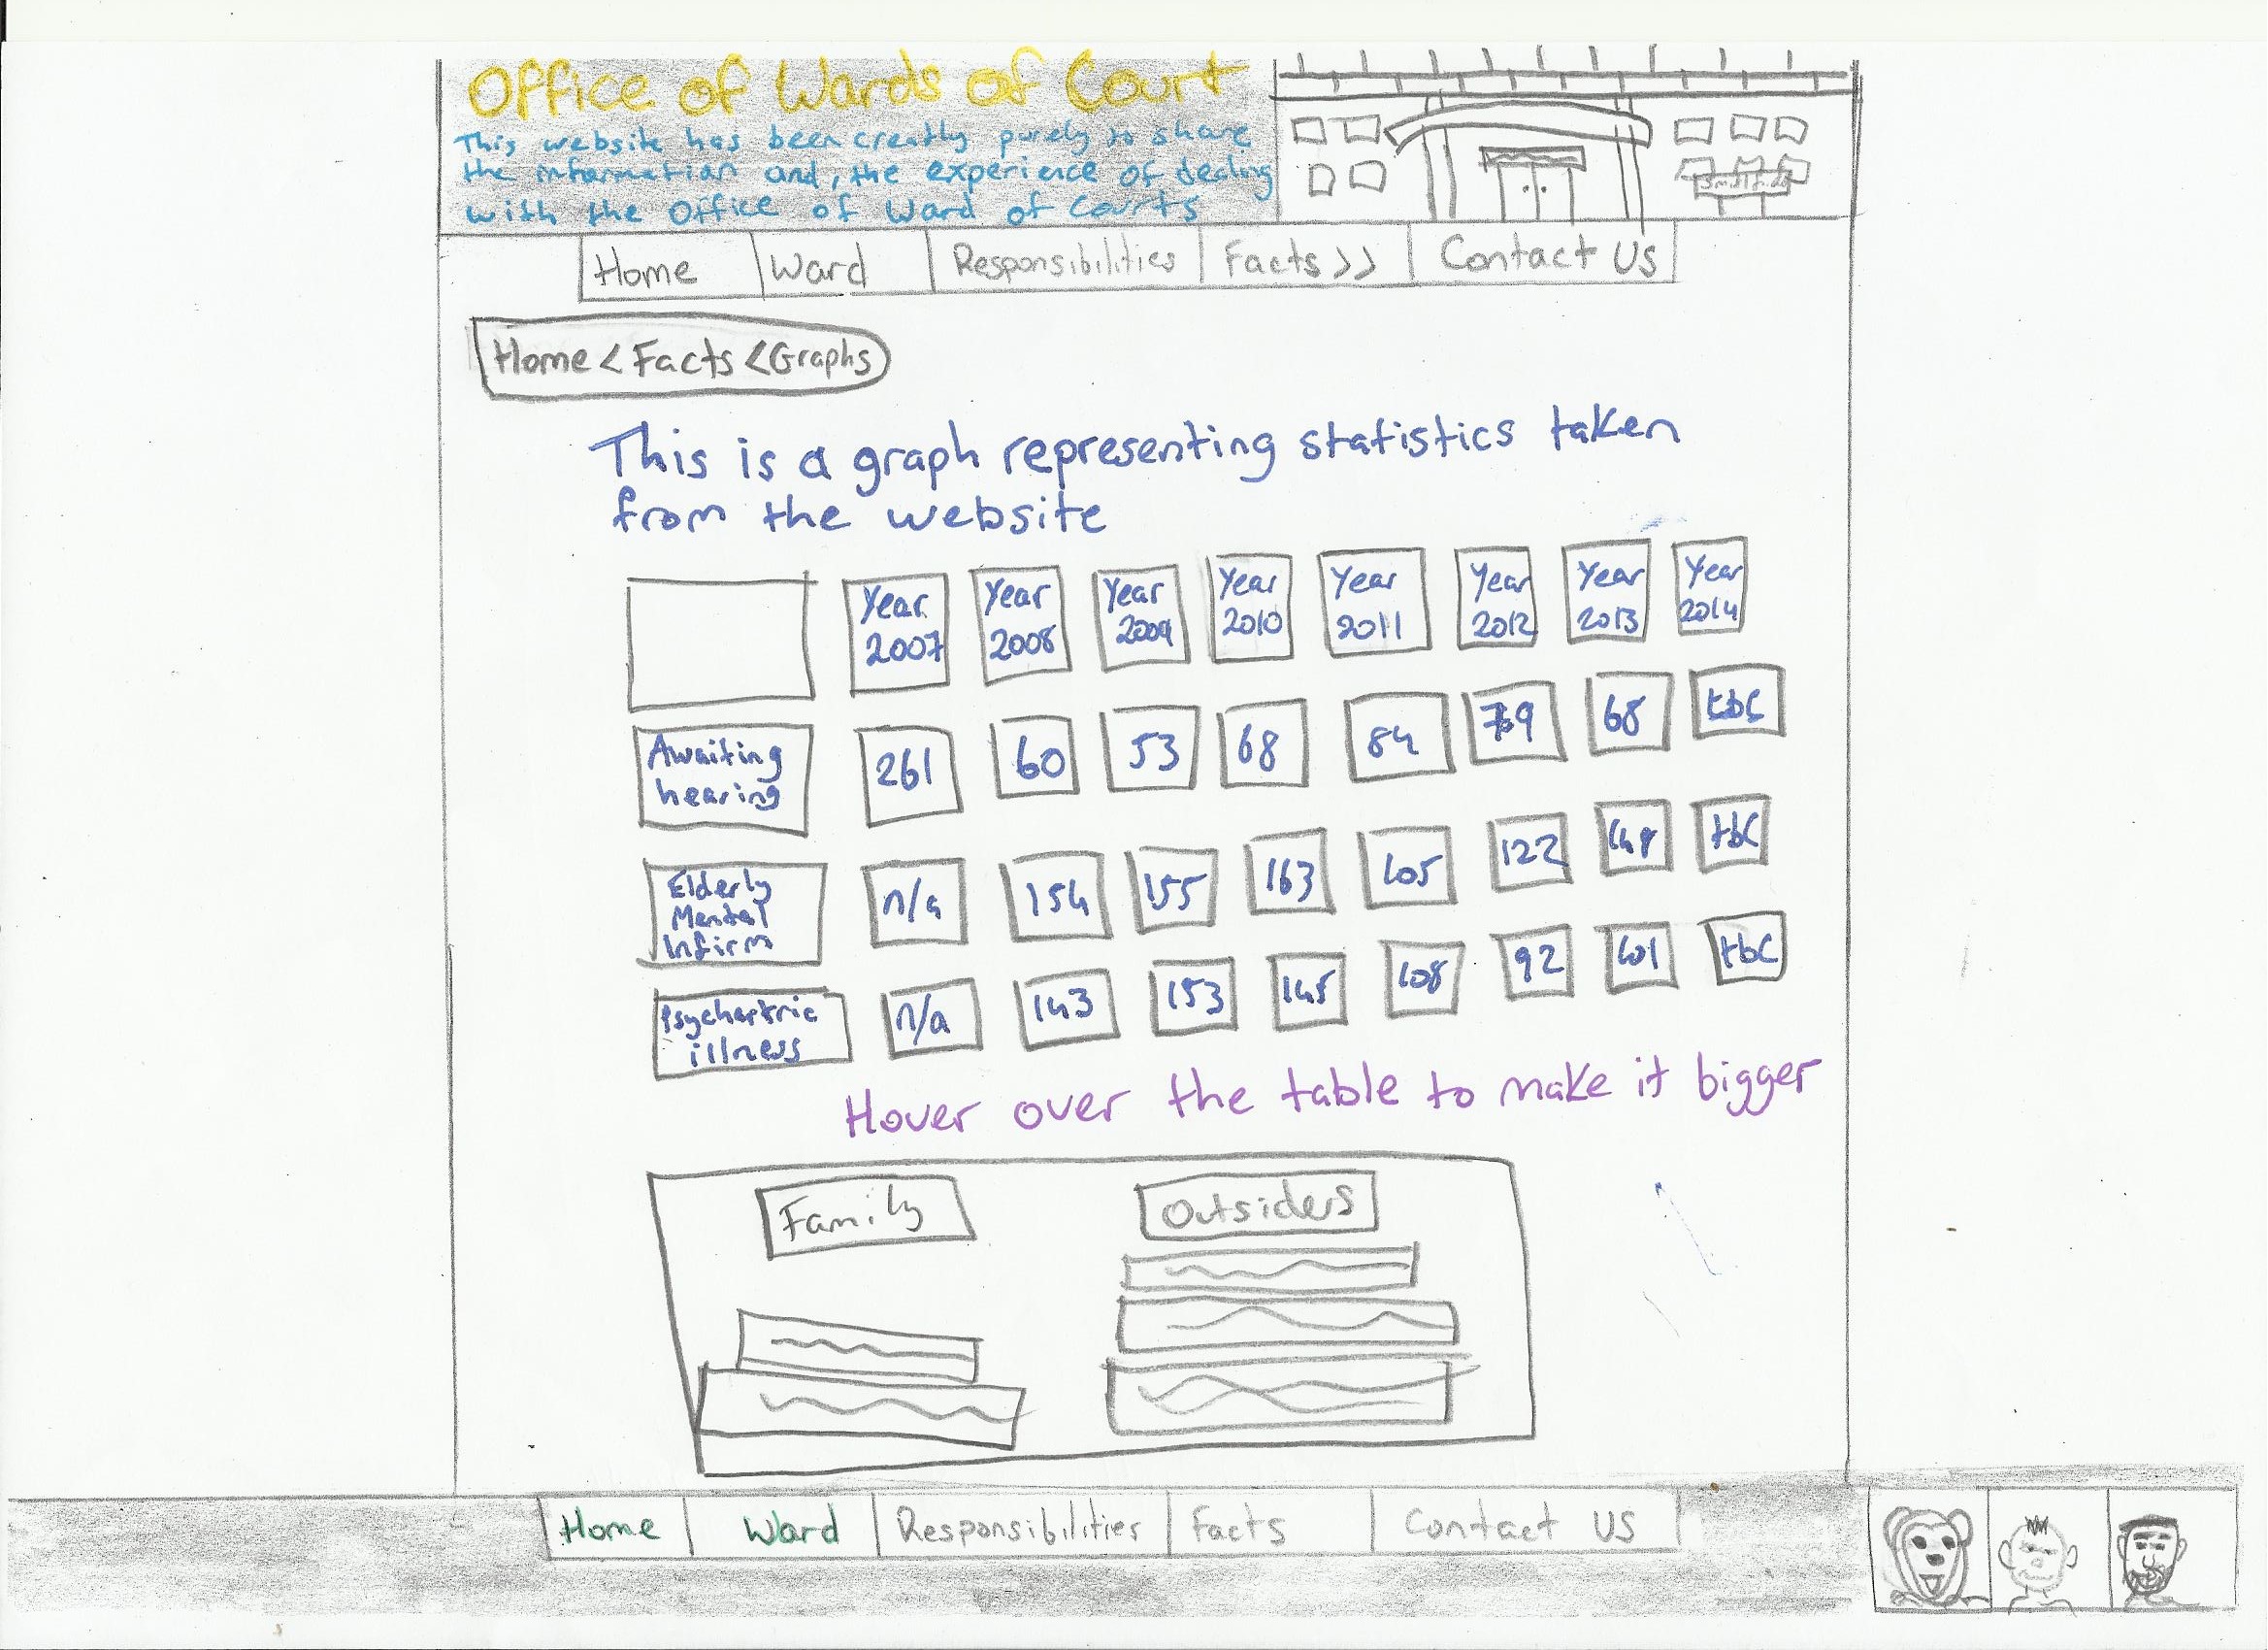 Office of Wards of Court
This website has been creatly purely to share
the information and, the experience of dealing
with the Office of Ward of Courts
Home Ward Responsibilities Facts >> Contact Us
Home < Facts < Graphs
This is a graph representing statistics taken
from the website
Year 2007 Year 2008 Year 2009 Year 2010 Year 2011 Year 2012 Year 2013 Year 2014
Awaiting hearing 261 60 53 68 84 79 68 tbc
Elderly Mental Infirm n/a 154 155 163 105 122 tbc
Psychartric illness n/a 143 153 145 108 92 101 tbc
Hover over the table to make it bigger
Family Outsiders
Home Ward Responsibilities Facts Contact US